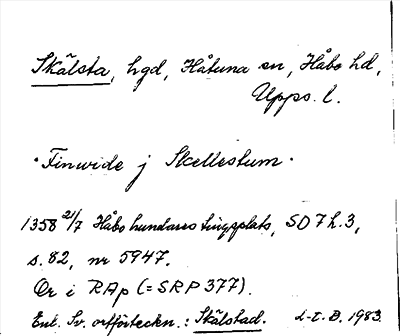 Skälsta, hgd, Håtuna sn, Håbo hd,
Upps. l.
"Finwide j Skellestum"
1358 21/7 Håbo hundares tingsplats, SD 7 h. 3,
s. 82, nr 5947.
Or i RAp (= SRP 377).
Enl. Sv. ortförteckn.: Skälstad. L-E. B. 1983